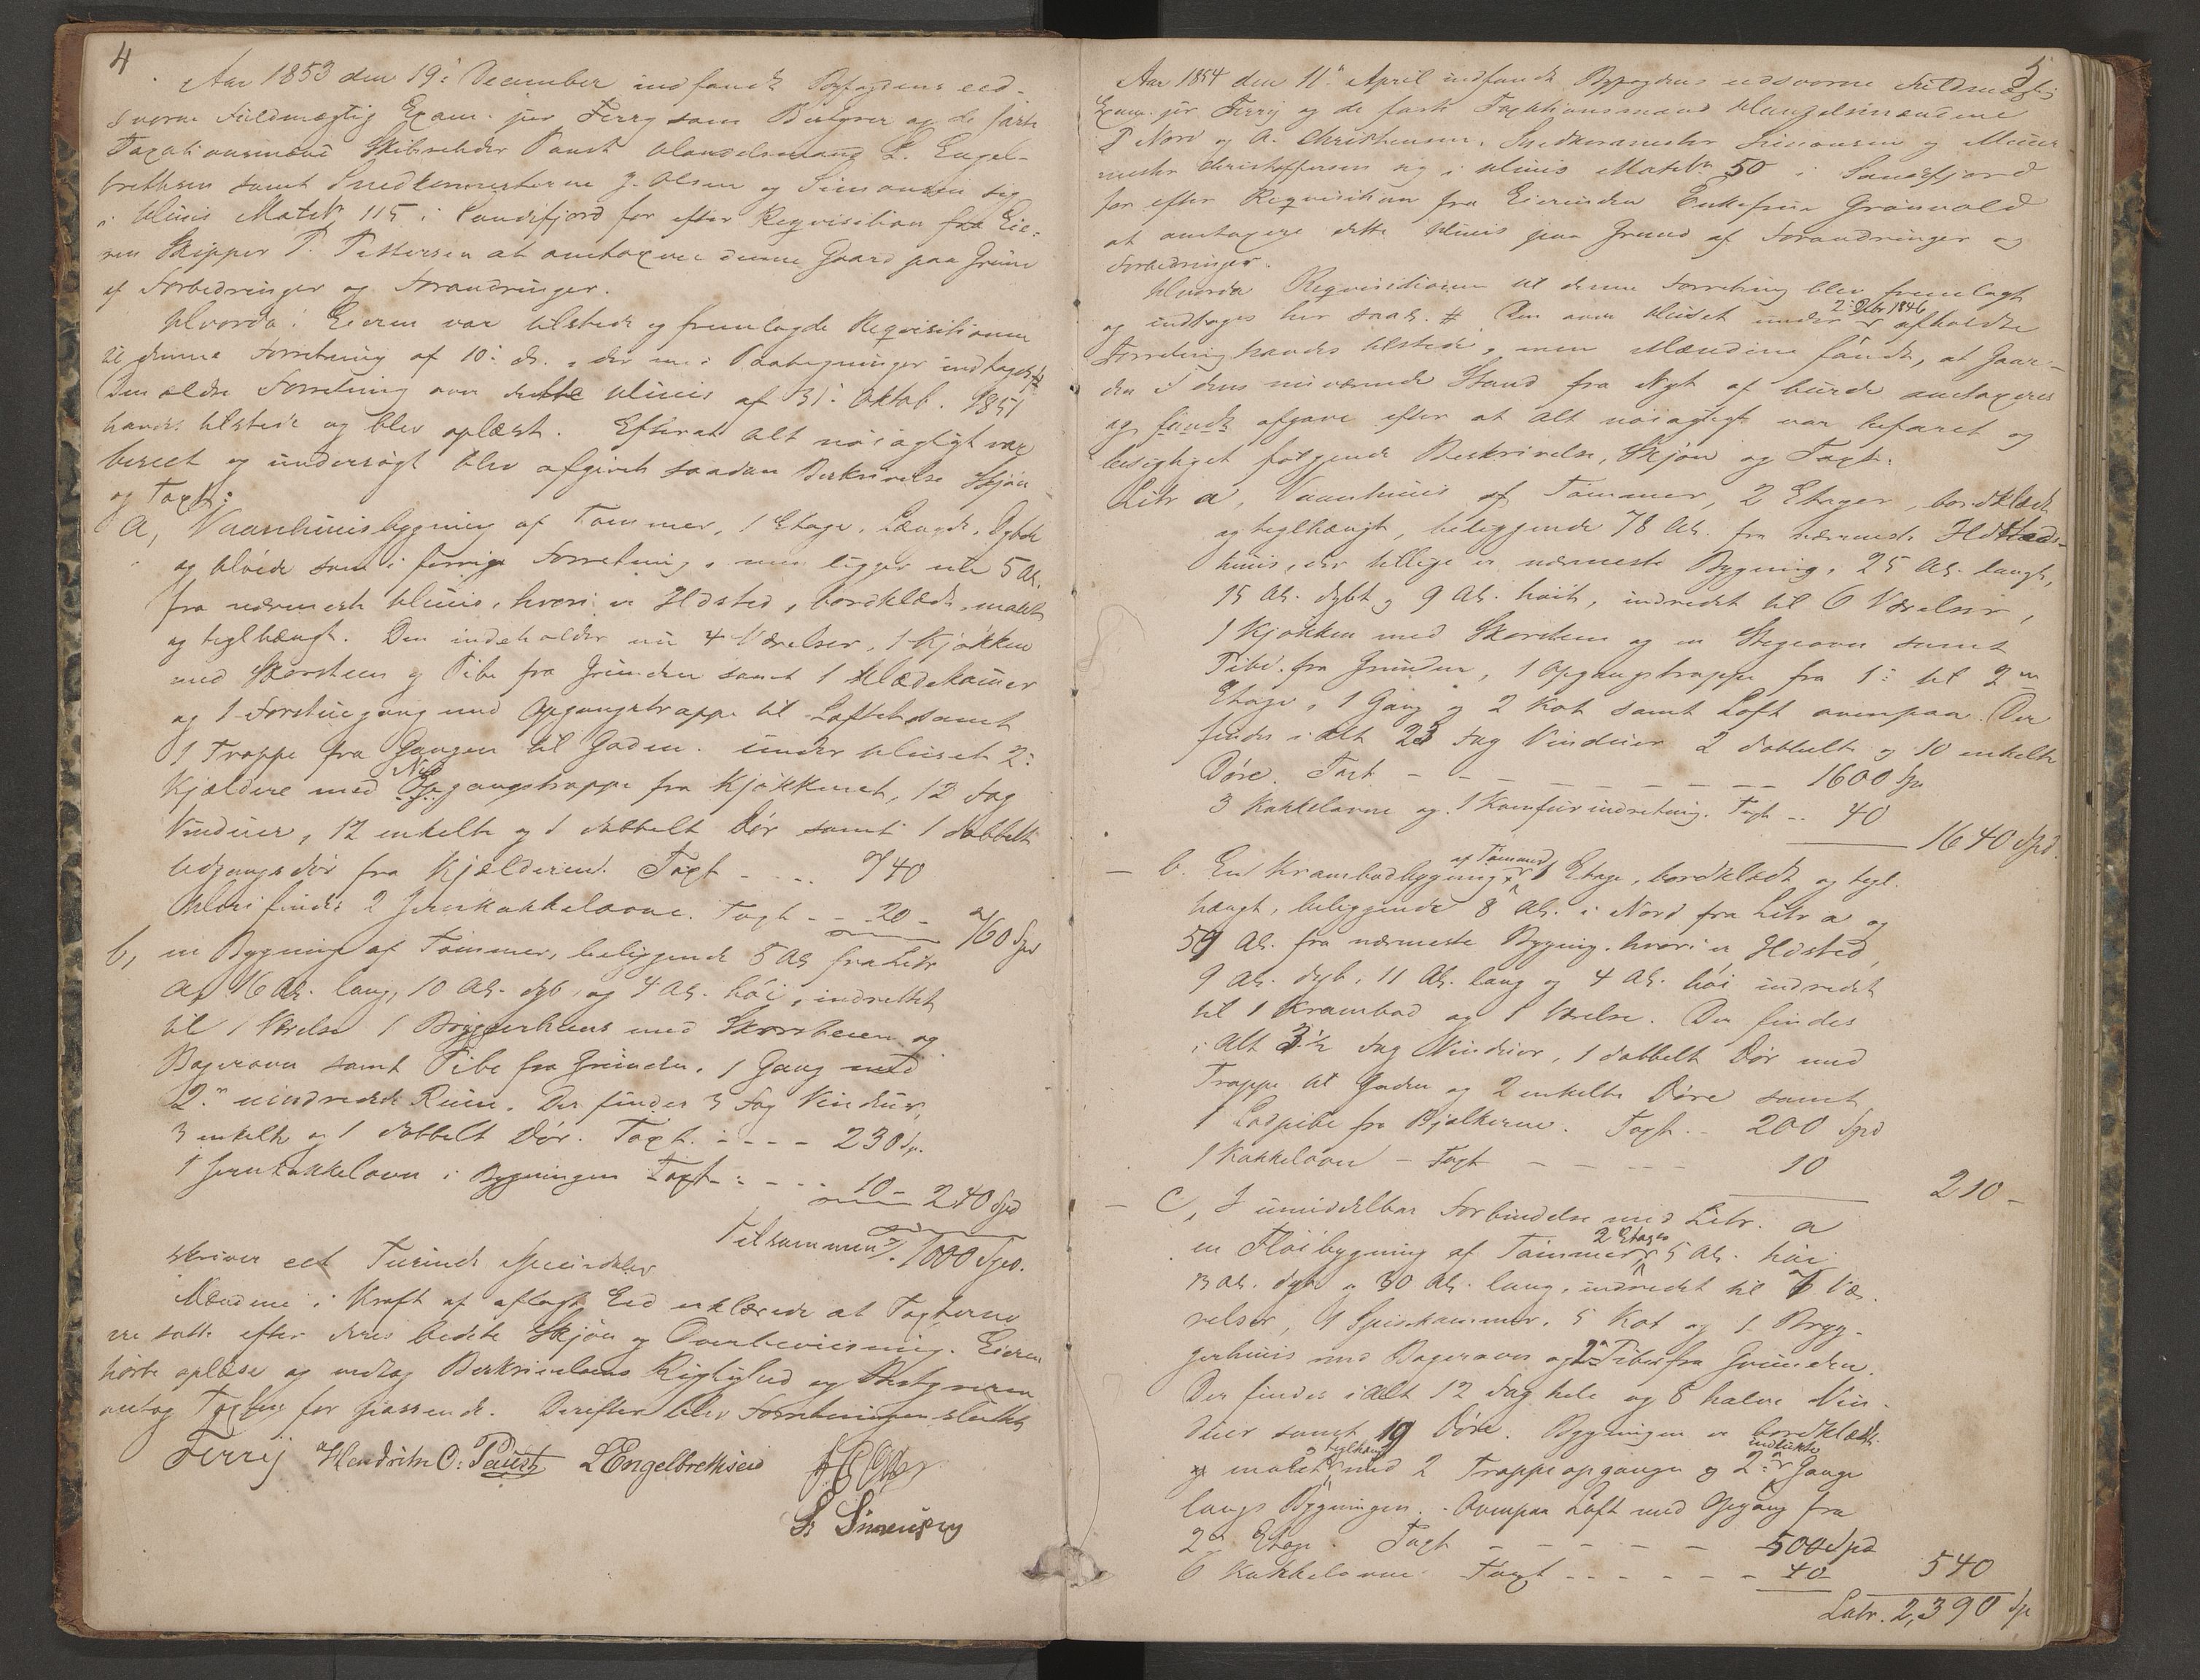 4
Aar 1853 den 19: December indfandt Byfogdens eed-
svorne Fuldmægtig Exam. jur Ferry som Bestyrer og de faste
Taxationsmænd Skibsrheder Paust Handelsmand L. Engel-
brethsen samt Snedkermesterne J. Olsen og Simonsen sig
i Huus Mat. N. 115 i Sandefjord for efter Reqvisition fra Eie-
ren Skipper P. Pettersen at omtaxere denne Gaard paa Grund
af Forbedringer og Forandringer.
Hvorda: Eieren var tilstede og fremlagde Reqvisitionen
til denne Forretning af 10: ds. der med Paategninger indtages #
Den ældre Forretning over dette Huus af 31: Oktob. 1851
havdes tilstede og blev oplæst. Efterat alt nøiagtigt var
beseet og undersøgt blev afgivet saadan Beskrivelse Skjøn
og Taxt:
a, Vaanhuusbygning af Tømmer, 1 Etage, Længde, Dybde
og Høide som i forrige Forretning, men ligger nu 5 Al.
fra nærmeste Huus, hvori er Ildsted, bordklædt, malet
og teglhængt. Den indeholder nu 4 Værelser, 1 Kjøkken
med Skorsteen og Pibe fra Grunden samt 1 Klædekamer
og 1 Forstuegang med Opgangstrappe til Loftet samt
1 Trappe fra Gangen til Gaden. Under Huset 2:
Kjældere med Ned Opgangstrappe fra Kjøkkenet, 12 Fag
Vinduer, 12 enkelte og 1 dobbelt Dør samt 1 dobbelt
Udgangsdør fra Kjælderen. Taxt - - - 740
Hvori findes 2 Jernkakkelovne. Taxt - - 20 - 760 Spd
b, en Bygning af Tømmer, beliggende 5 Al. fra Litr
a, 16 Al. lang, 10 Al. dyb, og 4 Al. høi, indrettet
til 1 Værelse 1 Bryggerhuus med Skorsteen og
Bagerovn samt Pibe fra Grunden, 1 Gang med
2 uindredede Rum. Der findes 3 Fag Vinduer,
3 enkelte og 1 dobbelt Dør. Taxt. - - - - 230 Sp.
1 Jernkakkelovn i Bygningen Taxt - - - - 10 - 240 Spd
Tilsammen 1000 Spd.
skriver eet Tusinde Speciedaler
Mændene i Kraft af aflagt Eed erklærede at Taxterne
ere satte efter deres bedste Skjøn og Overbeviisning. Eieren
hørte oplæse og vedtog Beskrivelsens Rigtighed og Bestyreren
antog Taxten for passende. Derefter blev Forretningen sluttet
Ferry Hendrik O: Paust L Engelbrethsen
S Simonsen
5
Aar 1854 den 11: April indfandt Byfogdens eedsvorne Fuldmægtig
Exam. jur Ferry og de faste Taxationsmænd Handelsmændene
P Nord og A. Christensen, Snedkermester Simonsen og Muur
mester Christoffersen sig i Huus Mat. N. 50 i Sandefjord
for efter Reqvisition fra Eierinden Enkefrue Grønvold
at omtaxere dette Huus paa Grund af Forandringer og
Forbedringer.
Hvorda Reqvisitionen til denne Forretning blev fremlagt
og indtages her saal. # Den over Huset under 2: Oktbr 1846 afholdte
Forretning havdes tilstede, men Mændene fandt, at Gaar-
den i dens nuværende Stand fra Nyt af burde omtaxeres
og fandt afgave efter at alt nøiagtigt var befaret og
besigtiget følgende Beskrivelse, Skjøn og Taxt.
Litr a, Vaanhuus af Tømmer, 2 Etager, bordklædt
og teglhængt, beliggende 78 Al. fra nærmeste Ildsteds-
huus, der tillige er nærmeste Bygning, 25 Al. langt,
15 Al. dybt og 9 Al. høit, indredet til 6 Værelser,
1 Kjøkken med Skorsteen og en Stegeovn samt
Pibe fra Grunden, 1 Opgangstrappe fra 1: til 2en
Etage, 1 Gang og 2 Kot samt Loft ovenpaa. Der
findes i alt 23 Fag Vinduer 2 dobbelte og 10 enkelte
Døre. Taxt - - - - - - - - 1600 Sp.
3 Kakkelovne og 1 Komfurindretning. Taxt - - 40
1640 Spd.
- b. En Krambodbygning af Tømmer 1 Etage, bordklædt og tegl.
hængt, beliggende 8 Al. i Nord fra Litr a og
59 Al. fra nærmeste Bygning, hvori er Ildsted,
9 Al. dyb, 11 Al. lang og 4 Al. høi indredet
til 1 Krambod og 1 Værelse. Der findes
i Alt 3 1/2 Fag Vinduer, 1 dobbelt Dør med
Trappe til Gaden og 2 enkelte Døre samt
1 Ladpibe fra Bjelkerne. Taxt. - 200 Spd
1 Kakkelovn - Taxt - - - - - 10
210 -
- C, I umiddelbar Forbindelse med Litr. a
en Fløibygning af Tømmer, 2 Etager 5 Al. høi
13 Al. dyb og 30 Al. lang, indredet til 7 Væ-
relser, 1 Spisekammer, 5 Kot og 1 Bryg-
gerhuus med Bagerovn og 2 Piber fra Grunden.
Der findes i alt 12 Fag hele og 8 halve Vin-
duer samt 19 Døre. Bygningen er bordklædt
og malet teglhængt med 2 Trappeopgange og 2 indlukte Gange
langs Bygningen. Ovenpaa Loft med Opgang fra
2n Etage. Taxt - - - - - - 500 Spd
6 Kakkelovne Taxt - - - - - 40 540
Latr. 2,390 Sp